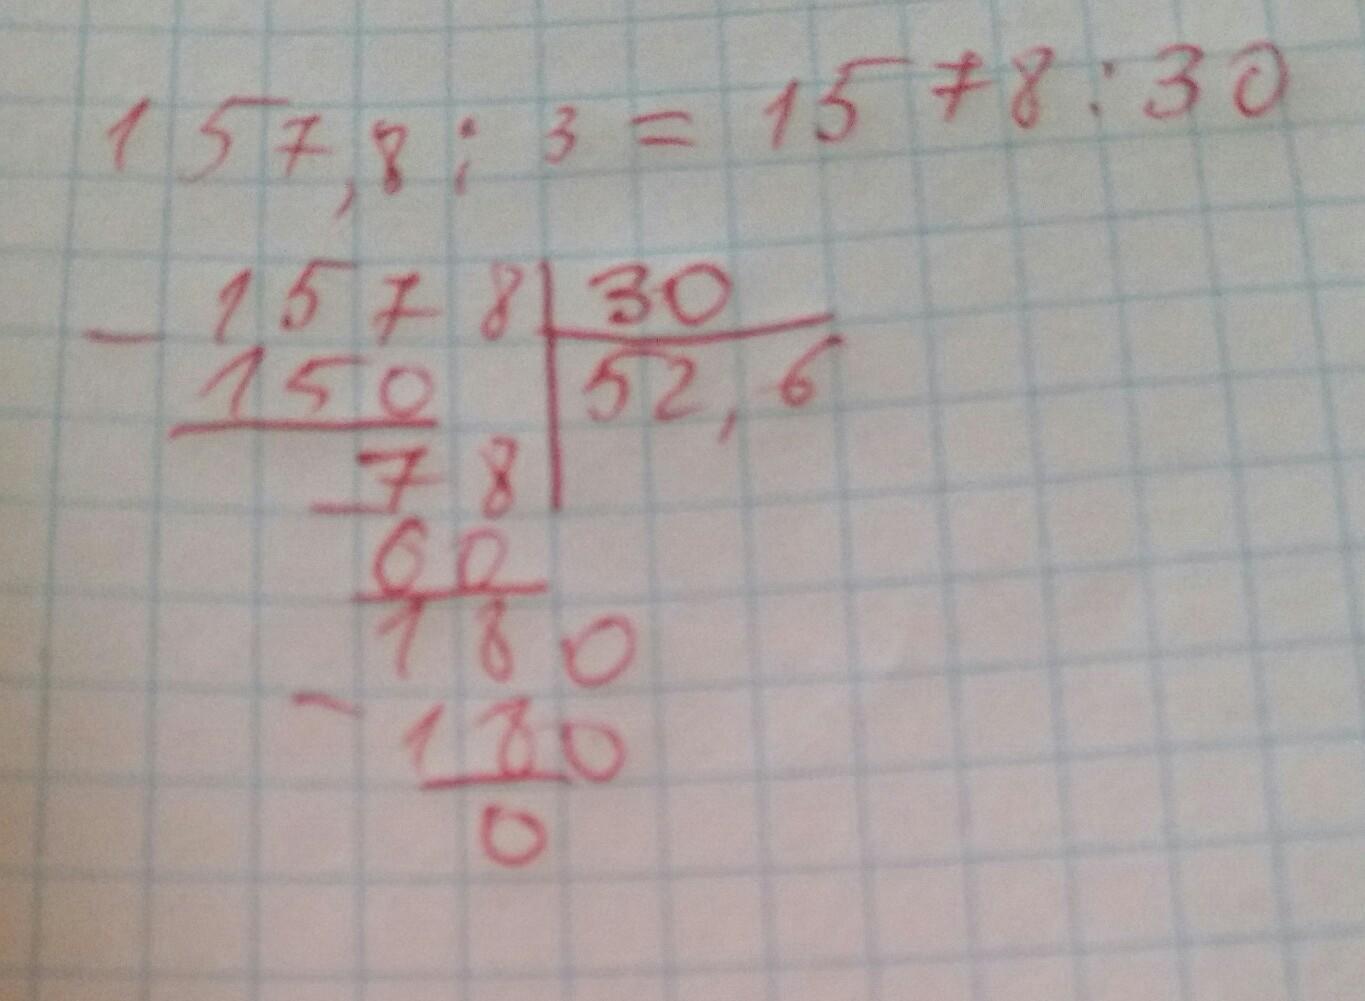 157,8 : 3 = 1578 : 30
- 1578 | 30
150 | 52,6
- 78
60
180
- 180
0